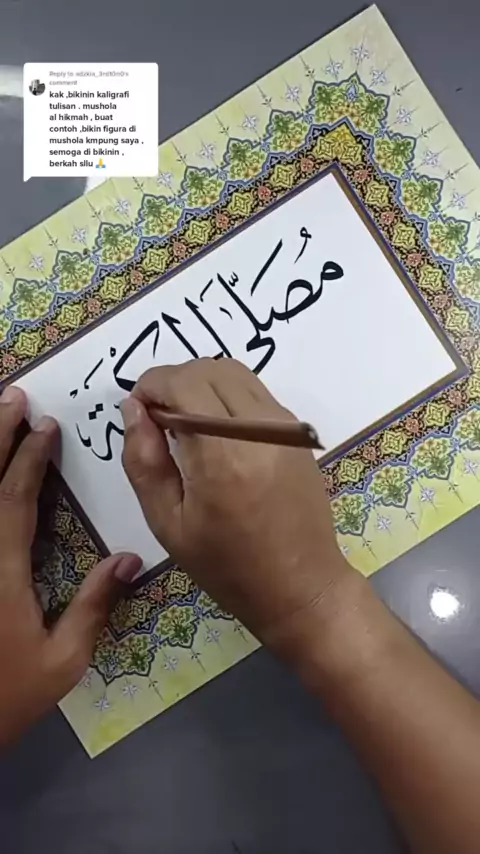 Reply to adzkia_3rdt0n0's
comment
kak ,bikinin kaligrafi
tulisan . mushola
al hikmah , buat
contoh ,bikin figura di
mushola kmpung saya ,
semoga di bikinin ,
berkah silu 🙏
مُصَلَّى